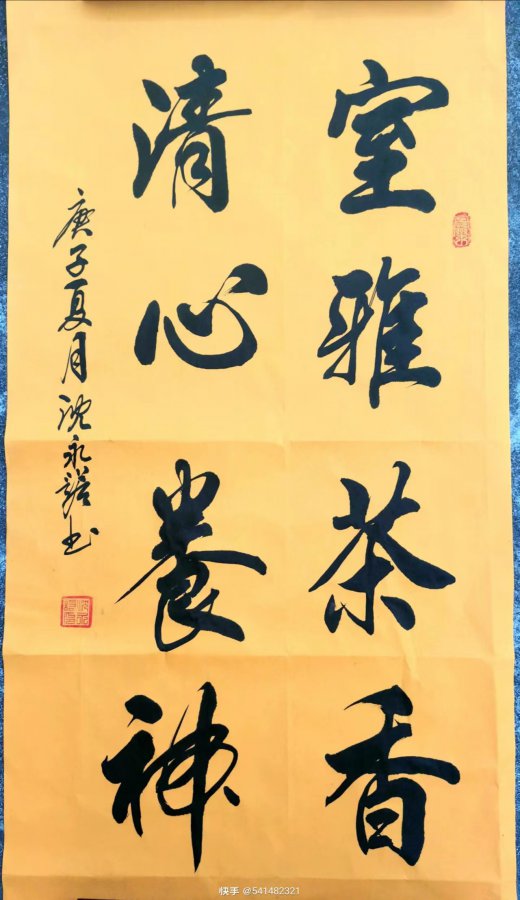 室雅茶香
清心養神
庚子夏月沈永謌书
快手 @541482321